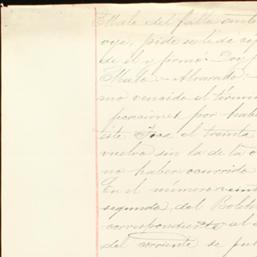 Malo del fallo ante
oye, pide se le de co
de el y firmo. Doy f
Malo - Alvarado -
mo vencido el termin
posiciones por habe
este Juz. el treinta
vuelva sin la de la o
no haber ocurrido
En el número veinti
segundo, del Boletin
correspondiente al d
del corriente se pub